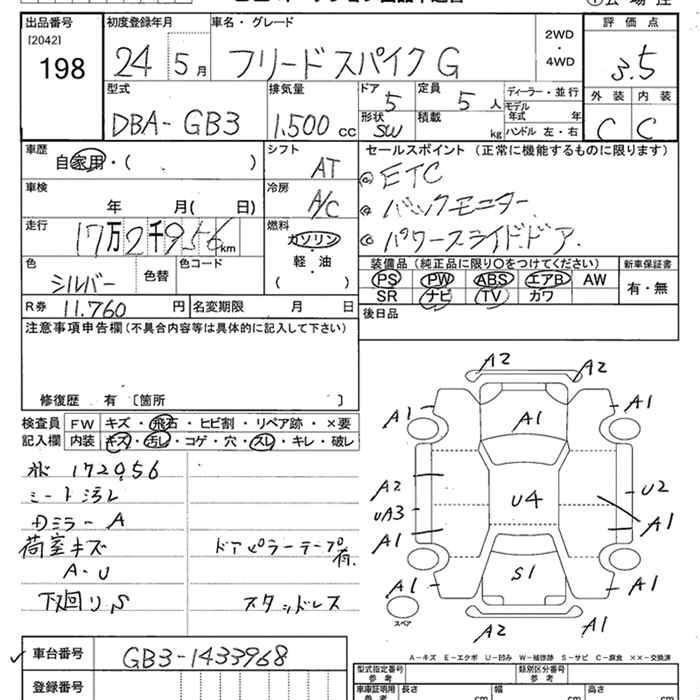 出品番号 初度登録年月 車名・グレード 評価点
[2042]
198 24 5月 フリードスパイク G 2WD・4WD 3.5
型式 排気量 ドア 定員 ディーラー・並行 外装 内装
DBA-GB3 1,500cc 5 5人 モデル年式 年 C C
形状 SW 積載 kg ハンドル 左・右
車歴 シフト セールスポイント (正常に機能するものに限ります)
自家用・( ) AT ETC
車検 冷房 バックモニター
年 月( 日) A/C パワースライドドア
走行 燃料
17万2千956km ガソリン・軽・油 ( )
装備品 (純正品に限り○をつけてください) 新車保証書
色 色替 色コード PS PW ABS エアB AW 有・無
シルバー SR ナビ TV カワ
R券 11.760円 名変期限 月 日 後日品
注意事項申告欄 (不具合内容等は具体的に記入して下さい)
修復歴 有 〔箇所 〕
検査員 FW キズ・飛石・ヒビ割・リペア跡・×要
記入欄 内装 キズ・汚レ・コゲ・穴・スレ・キレ・破レ
172956
シート汚レ
Dミラー A
荷室キズ ドアピラーテープ有.
A・U
下廻りS スタッドレス
A2 A2
A1 A1 A1
A2 U4 U2
UA3
A1 A1
A1 S1 A1
スペア
A2 A1
A-キズ E-エクボ U-凹み W-補修跡 S-サビ C-腐食 ××-交換済
車台番号 GB3-1433968
登録番号
型式指定番号 参考 類別区分番号 参考
車庫証明用 参考 長さ cm 幅 cm 高さ cm